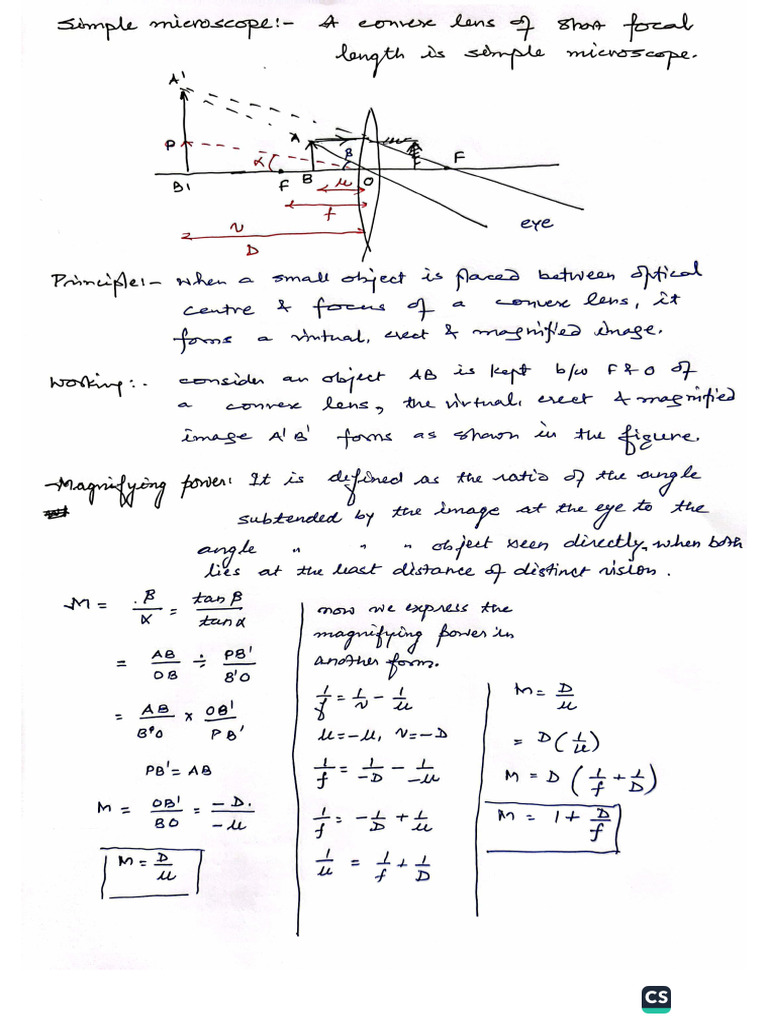 Simple microscope:- A convex lens of short focal
length is simple microscope.
A'
P
A
β
F
α
B'
F
B
u
O
f
v
D
eye
Principle:- when a small object is placed between optical
centre & focus of a convex lens, it
forms a virtual, erect & magnified image.
Working:- consider an object AB is kept b/w F & O of
a convex lens, the virtual, erect & magnified
image A'B' forms as shown in the figure.
Magnifying power: It is defined as the ratio of the angle
subtended by the image at the eye to the
angle " " " object seen directly, when both
lies at the least distance of distinct vision.
M = β/α = tan β/tan α
= AB/OB ÷ PB'/B'O
= AB/B'O × OB'/PB'
PB' = AB
M = OB'/BO = -D/-u
M = D/u
now we express the
magnifying power in
another form.
1/f = 1/v - 1/u
u = -u, v = -D
1/f = 1/-D - 1/-u
1/f = -1/D + 1/u
1/u = 1/f + 1/D
M = D/u
= D(1/u)
M = D(1/f + 1/D)
M = 1 + D/f
CS